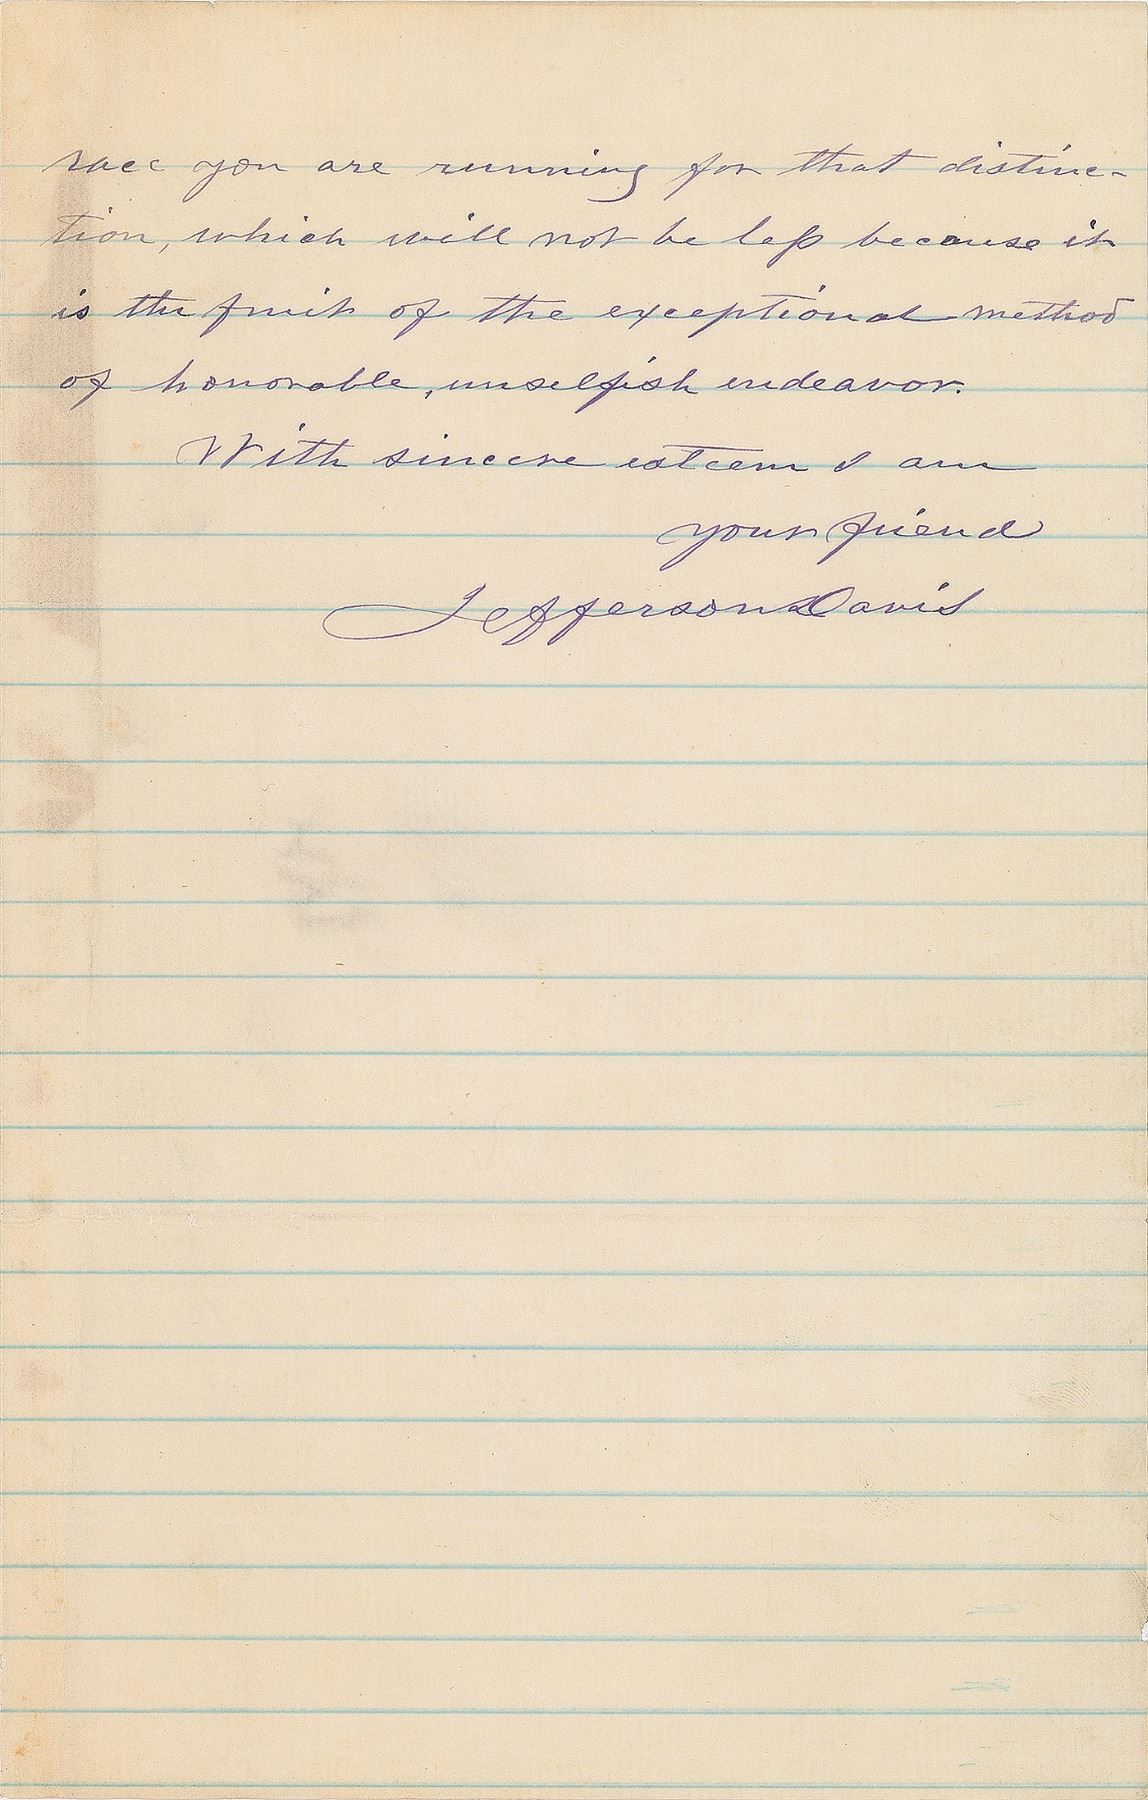 race you are running for that distinc-
tion, which will not be less because it
is the fruit of the exceptional method
of honorable, unselfish endeavor.
With sincere esteem I am
your friend
Jefferson Davis